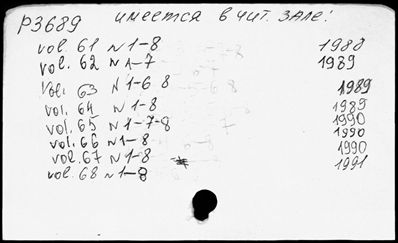 P3689 имеется в чит. зале!
vol. 61 N 1-8 1988
vol. 62 N 1-7 1989
vol. 63 N 1-6 8 1989
vol. 64 N 1-8 1989
vol. 65 N 1-7-8 1990
vol. 66 N 1-8 1990
vol. 67 N 1-8 1990
vol. 68 N 1-8 1991